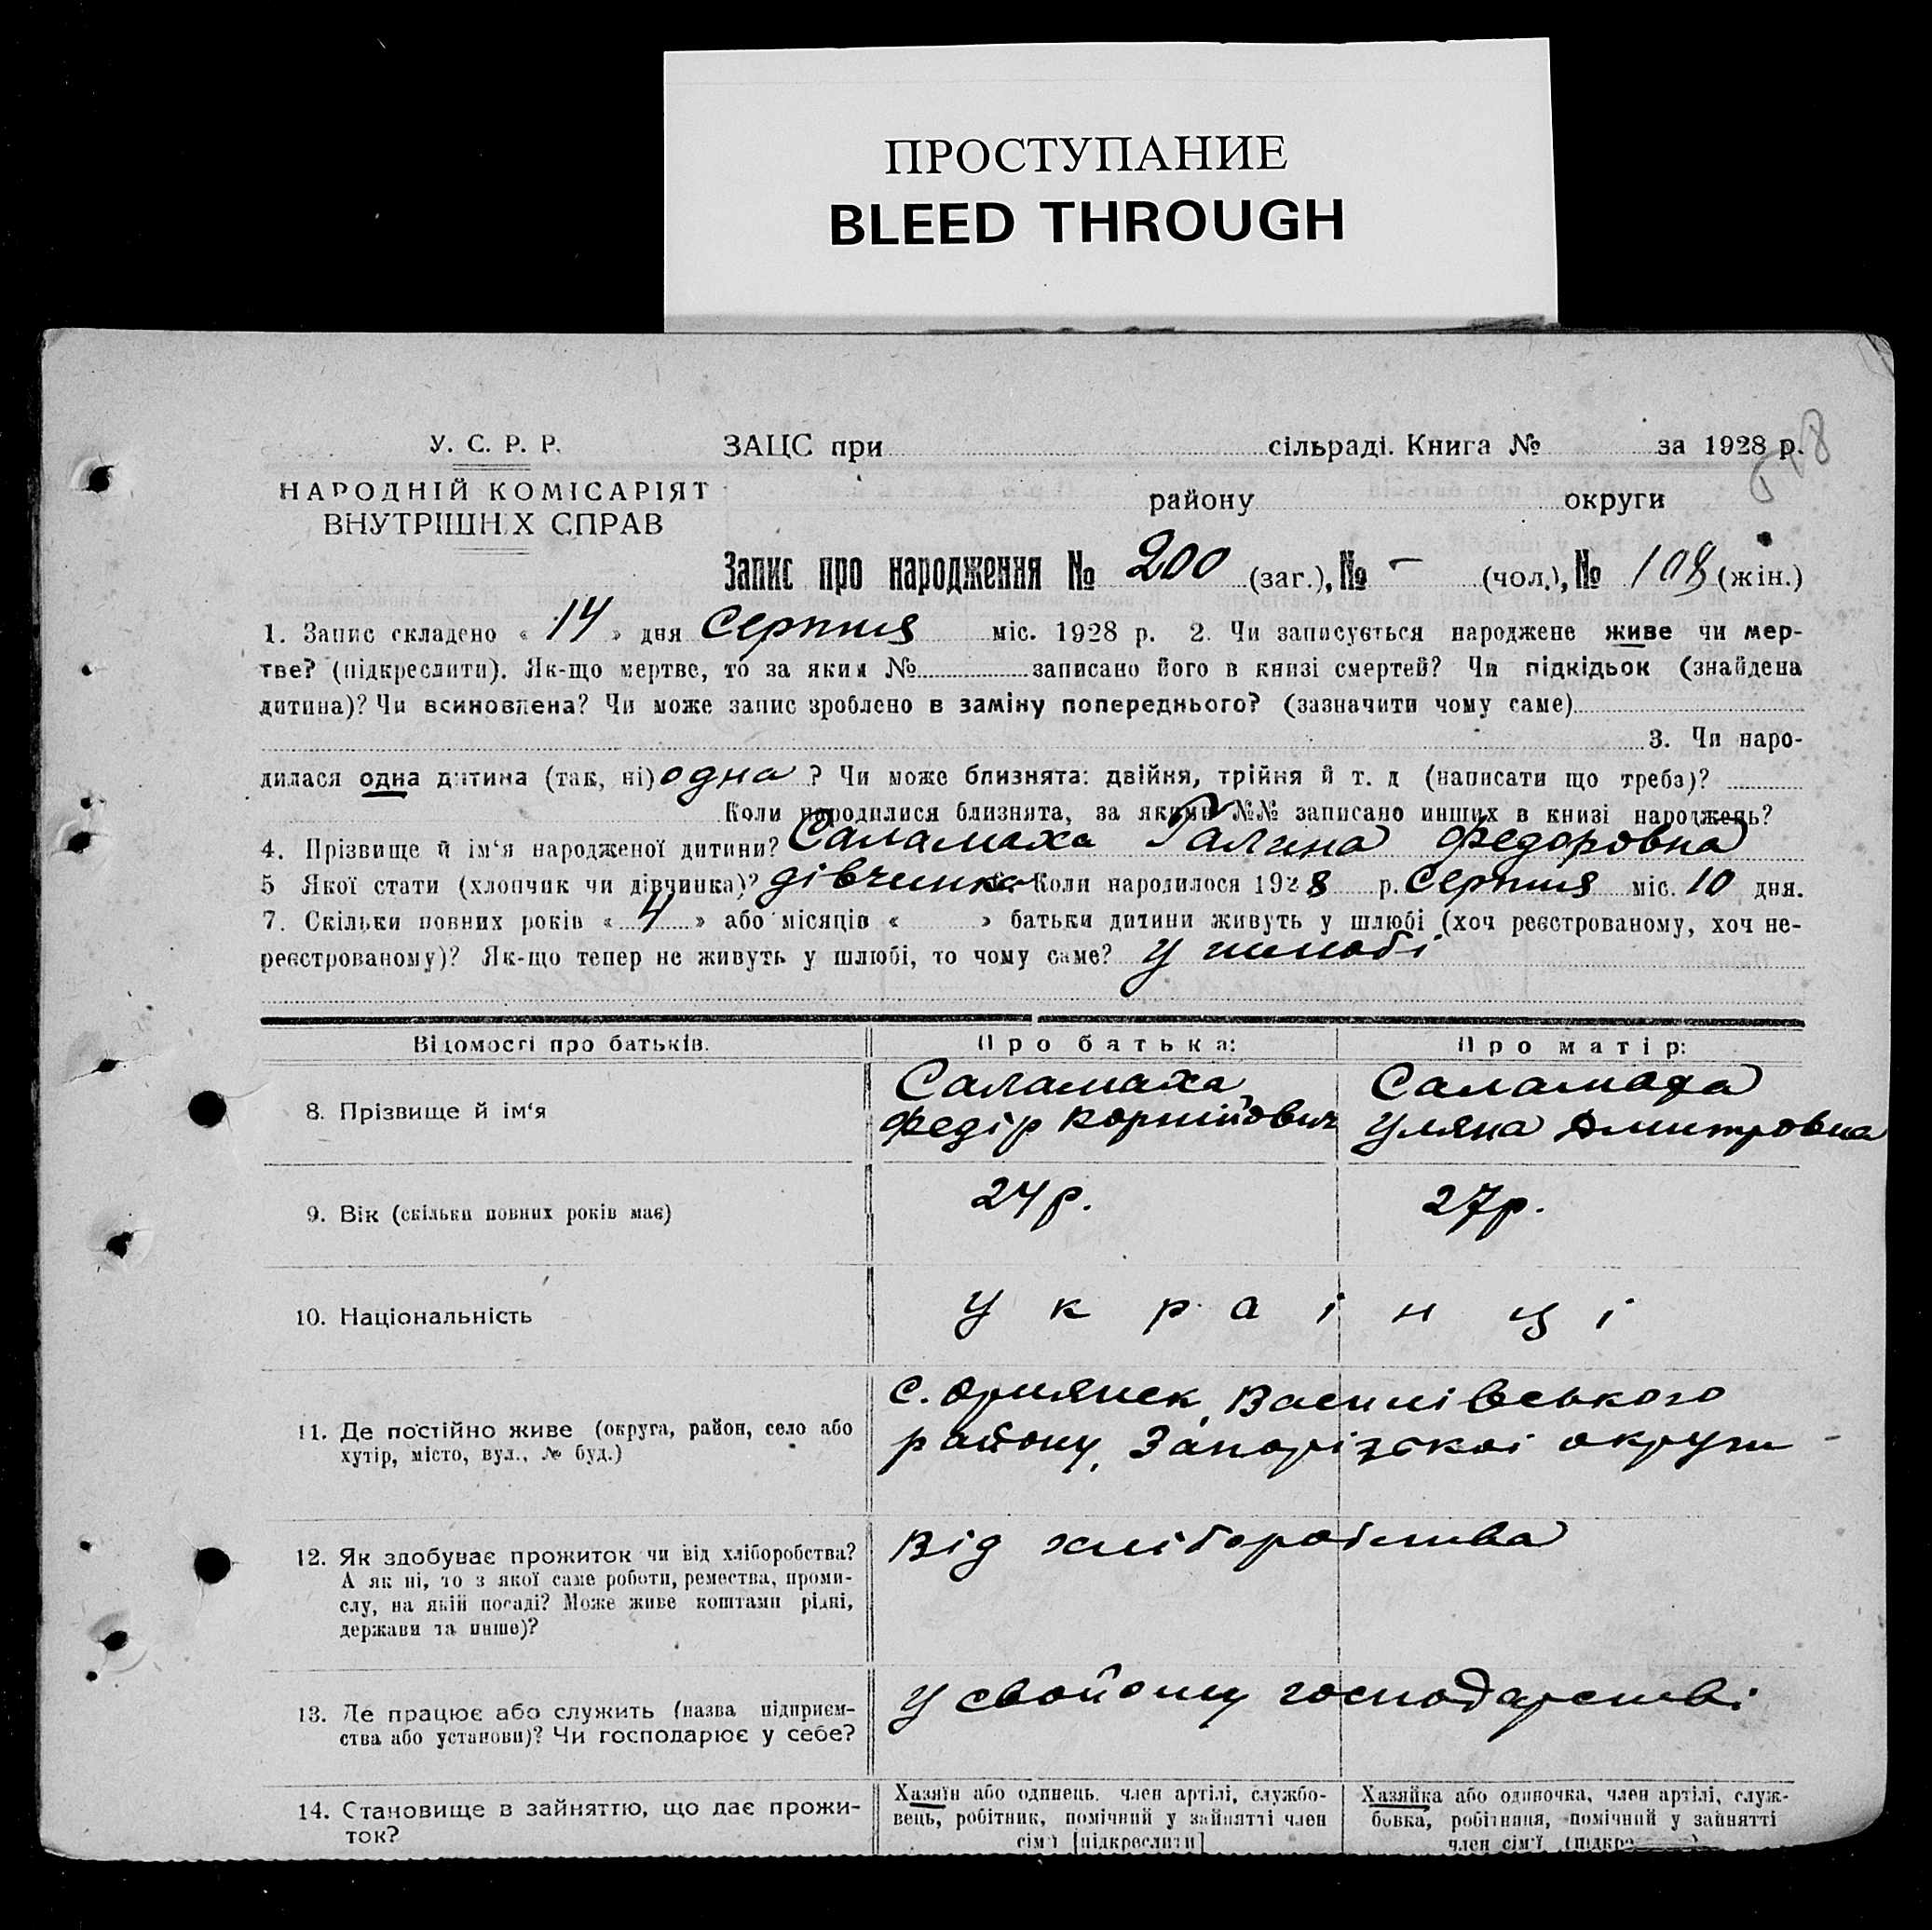 ПРОСТУПАНИЕ
BLEED THROUGH
У. С. Р. Р.
НАРОДНІЙ КОМІСАРІЯТ
ВНУТРІШНІХ СПРАВ
ЗАЦС при сільраді. Книга № за 1928 р.
району округи
Запис про народження № 200 (заг.), № – (чол.), № 108 (жін.)
1. Запис складено « 14 » дня Серпня міс. 1928 р. 2. Чи записується народжене живе чи мер-
тве? (підкреслити). Як-що мертве, то за яким № записано його в книзі смертей? Чи підкідьок (знайдена
дитина)? Чи всиновлена? Чи може запис зроблено в заміну попереднього? (зазначити чому саме)
3. Чи наро-
дилася одна дитина (так, ні) одна ? Чи може близнята: двійня, трійня й т. д (написати що треба)?
Коли народилися близнята, за якими №№ записано инших в книзі народжень?
4. Прізвище й ім‘я народженої дитини? Саламаха Галина Федоровна
5 Якої стати (хлопчик чи дівчинка)? дівчинка Коли народилося 1928 р. Серпня міс. 10 дня.
7. Скільки повних років « 4 » або місяців « » батьки дитини живуть у шлюбі (хоч реєстрованому, хоч не-
реєстрованому)? Як-що тепер не живуть у шлюбі, то чому саме? У шлюбі
Відомості про батьків. Про батька: Про матір:
8. Прізвище й ім‘я
Саламаха
Федір Корнійович
Саламаха
Уляна Дмитровна
9. Вік (скільки повних років має) 24 р. 27 р.
10. Національність Українці
11. Де постійно живе (округа, район, село або
хутір, місто, вул., № буд.)
с. Орлянск, Василівського
району, Запорізскоі округи
12. Як здобуває прожиток чи від хліборобства?
А як ні, то з якої саме роботи, ремества, проми-
слу, на якій посаді? Може живе коштами рідні,
держави та инше)?
Від хліборобства
13. Де працює або служить (назва підприєм-
ства або установи)? Чи господарює у себе?
У свойому господарстві
14. Становище в зайняттю, що дає прожи-
ток?
Хазяїн або одинець, член артілі, службо-
вець, робітник, помічний у зайнятті член
сім‘ї [підкреслити]
Хазяйка або одиночка, член артілі, служ-
бовка, робітниця, помічний у зайнятті
член сім‘ї